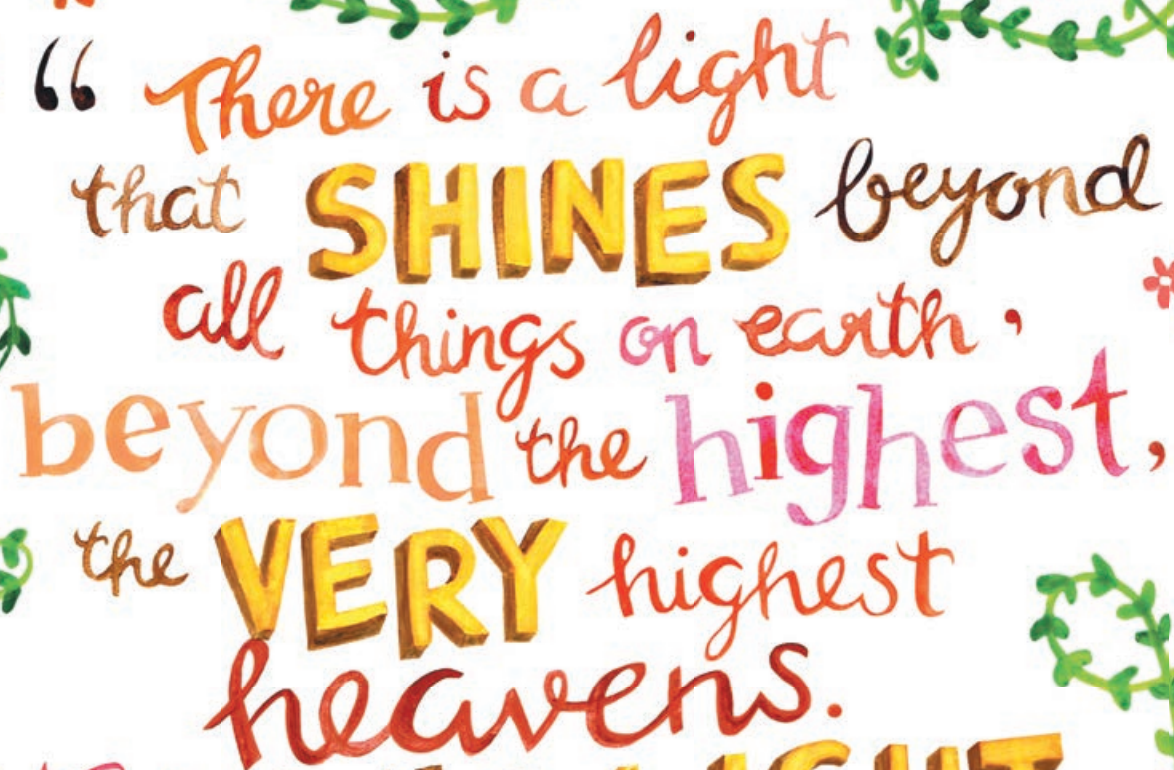 “ There is a light
that SHINES beyond
all things on earth,
beyond the highest,
the VERY highest
heavens.